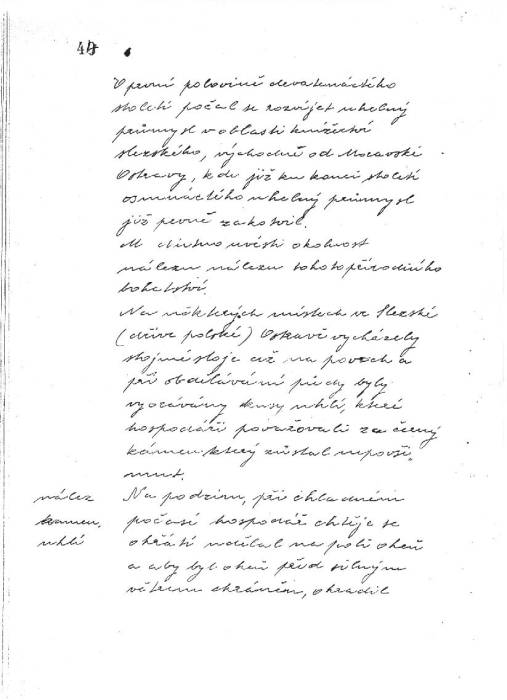 V první polovině devatenáctého
století počal se rozvíjet uhelný
průmysl v oblasti knížectví
slezského, východně od Moravské
Ostravy, kde již ku konci století
osmnáctého uhelný průmysl
již pevně zakotvil.
M nutno uvésti okolnost
nálezu nálezu tohoto přírodního
bohatství.
Na některých místech ve Slezské
(dříve polské) Ostravě vycházely
stojmé sloje až na povrch a
při obdělávání půdy byly
vyorávány kusy uhlí, které
hospodáři považovali za černý
kámen který zůstal nepovši„
mnut.
nález
kamen.
uhlí
Na podzim, při chladném
počasí hospodář chtěje se
ohřáti udělal na poli oheň
a aby byl oheň před silným
větrem chráněn, ohradil